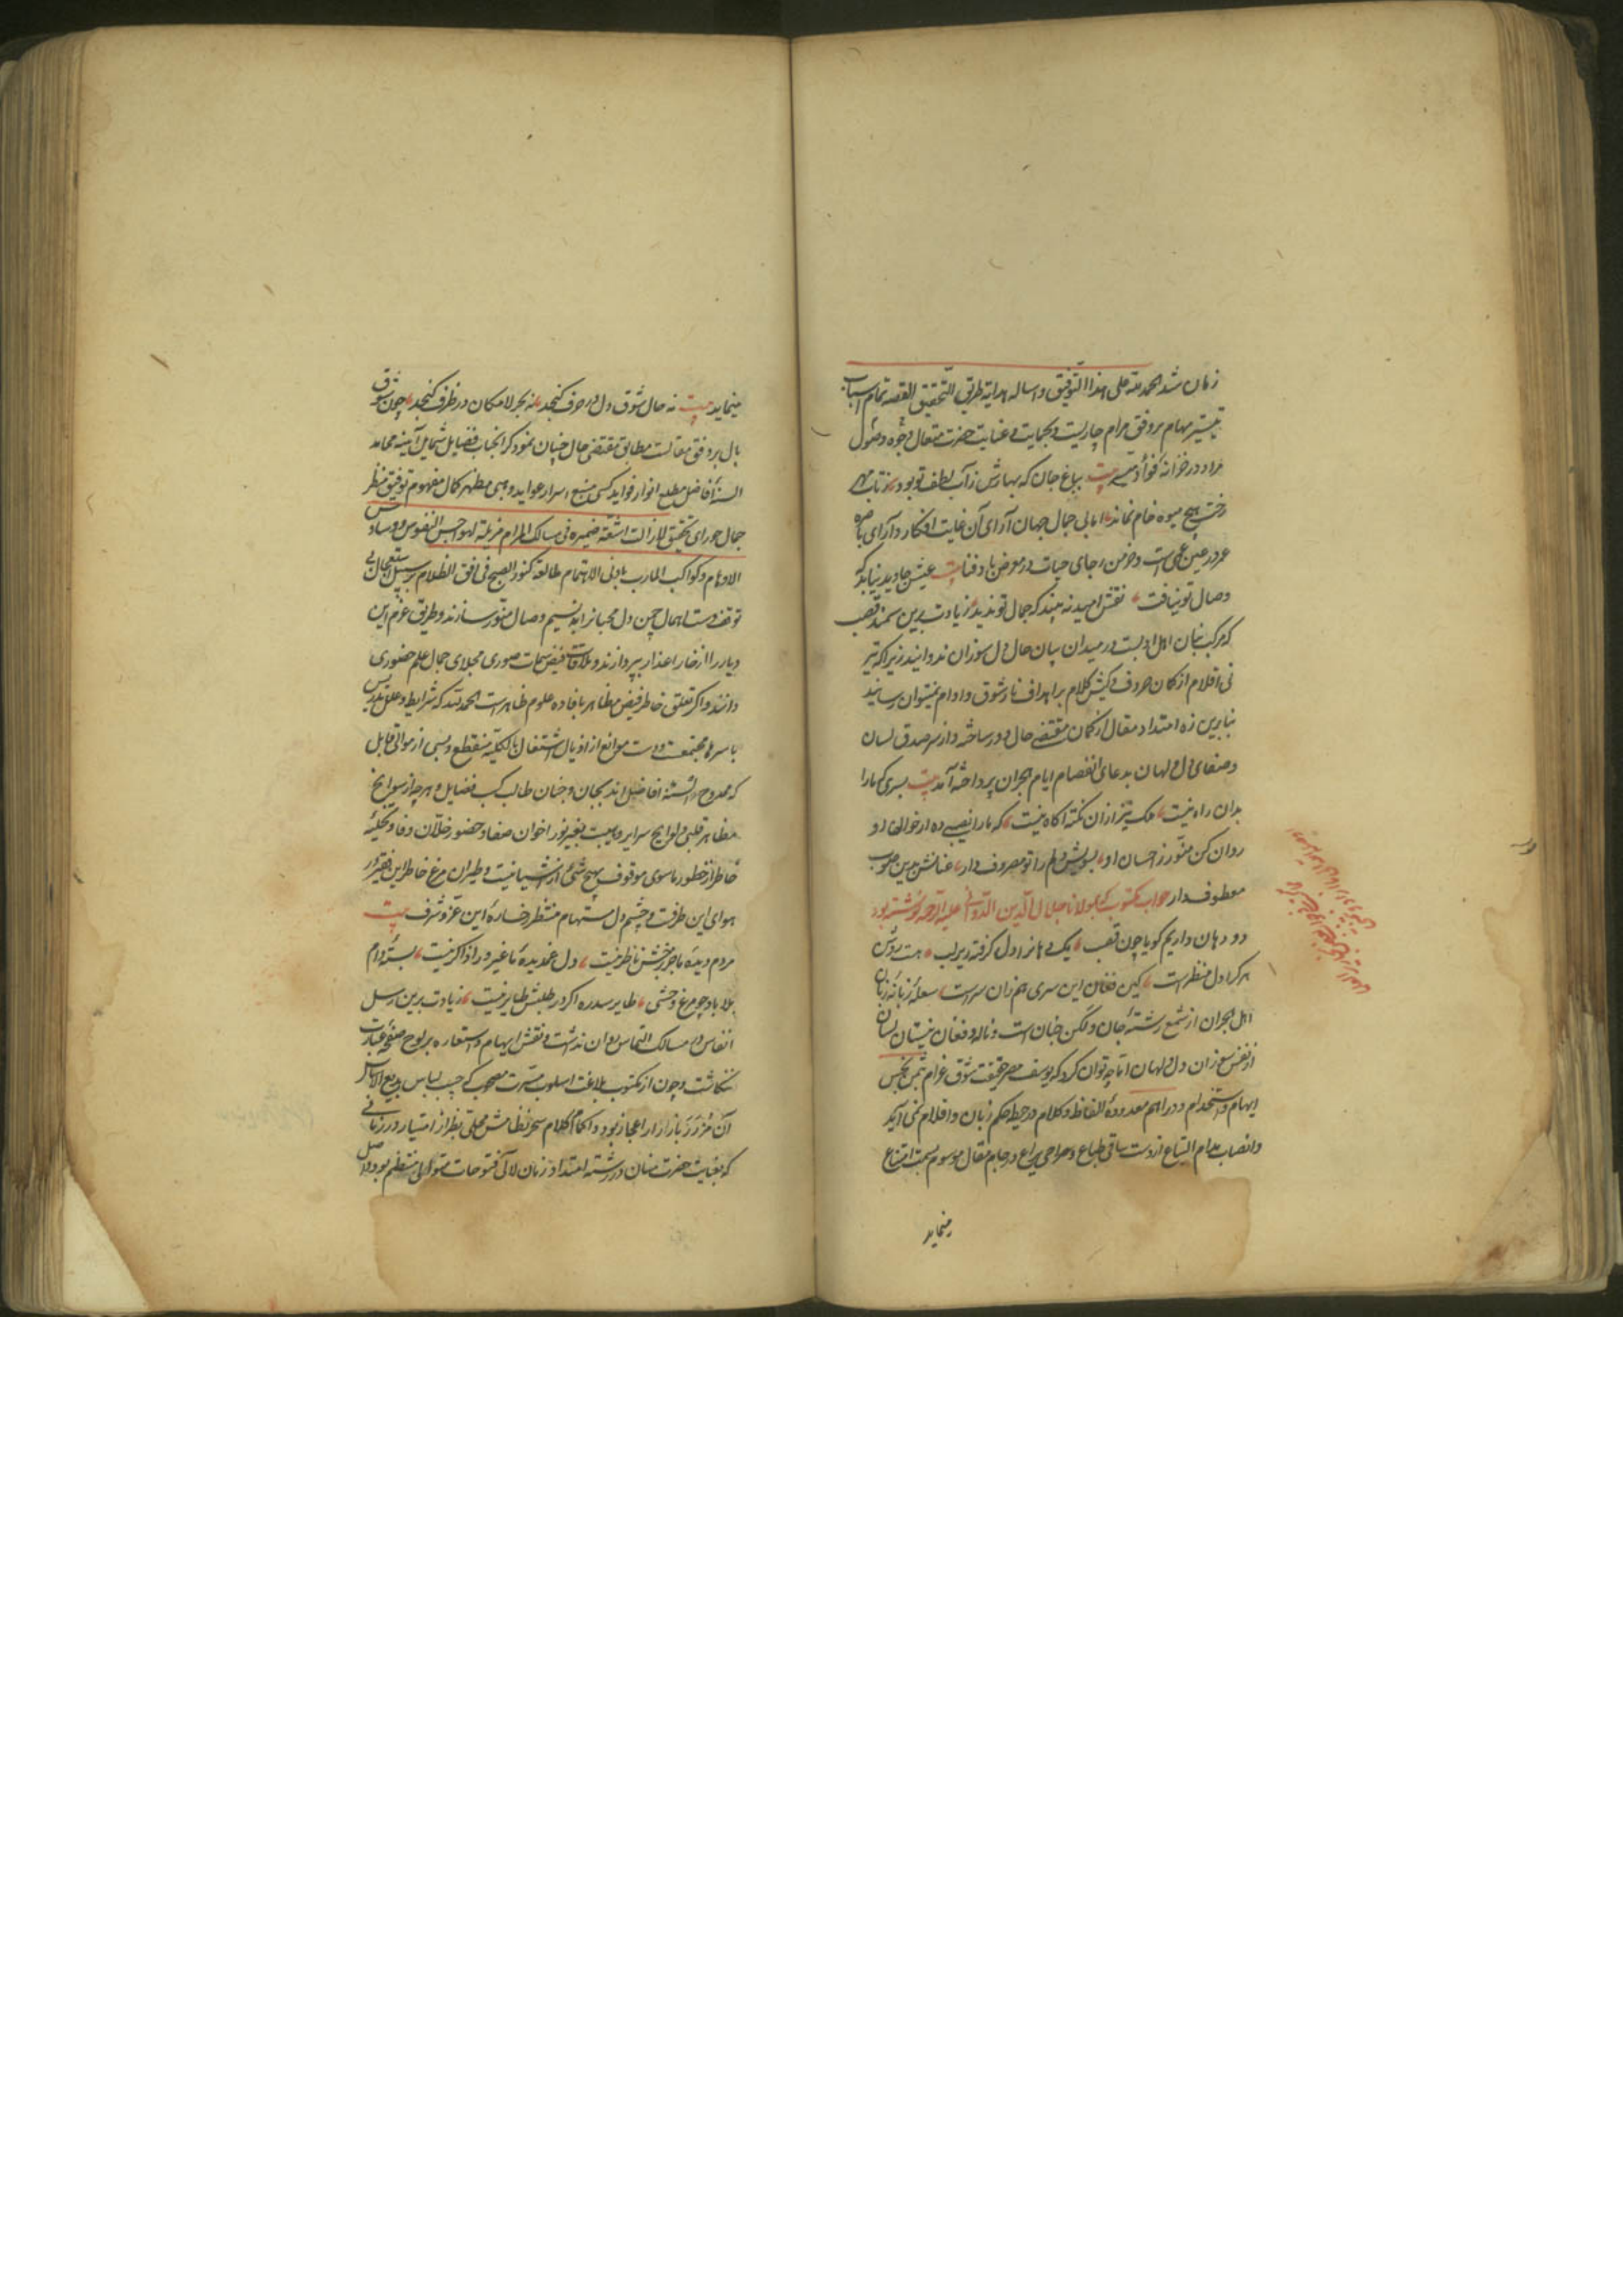 زمان شد الحمد لله على هذا التوفيق واساله هداية طريق التحقيق القصه تمام اسباب
تیسیر مهام بر وفق مرام جاریست و بحمایت و عنایت حضرت متعال وجوه وصول
مراد در خزانه فواد بیت بباغ جان که بهارش ز آب لطف تو بود ز تاب
درخت هیچ میوه خام نماند اما بی جمال جهان آرای آن غایت افکار و آرای باصره
عمر در عین عمی است و خرمن رجای حیات در معرض باد فنا بیت عیش جاوید نیابد که
وصال تو نیافت نقش امید نه بیند که جمال تو ندید زیادت برین سمند قصب
که مرکب بنان اهل ادبست در میدان بیان حال دل سوزان ندوانید زیرا که تیر
نی اقلام از کمان حروف و کیش کلام بر اهداف نار شوق و اوام نمیتوان رسانید
بنابرین زه امتداد مقال از کمان مقتضی حال دور ساخته و از سر صدق لسان
و صفای دل ولهان بدعای انفصام ایام هجران پرداخته آمد بیت بسری که ما را
بدان راه نیست ملک نیز از آن نکته اکاه نیست که ما را نصیبی ده از خوان او
روان کن منور ز احسان او بسویش دلم را تو مصروف دار عنانش بدین صوب
معطوف دار جواب مکتوب که مولانا جلال الدین الدوانی علیه الرحمه نوشته بود
دو دهان داریم کویا چون قصب یک دهانرا دل کرفته زیر لب هست روشن
هر کرا دل منظرست کین فغان این سری هم زان سرست شعله زبانه زبان
اهل هجران از شمع رشته جان و لکن جنان است و ناله و فغان نیستان لسان
از نفس سوزان دل ولهان اما چه توان کرد که یوسف مصر حقیقت شوق غرام بثمن بخس
ایهام و استخدام و دراهم معدوده الفاظ و کلام در حیطه حکم زبان و اقلام نمی آید
و انصباب مدام التیاع از دست ساقی طباع و صراحی یراع در جام مقال موسوم بسمت امتناع
مینماید
مینماید بیت نه حال شوق دل در حرف کنجد نه بحر لامکان در ظرف کنجد چون شوق
بال بر وفق مقالت مطابق مقتضی حال چنان نمود که انجناب فضایل شمایل آینه محامد
السنه افاضل مطلع انوار فواید کسبی منبع اسرار عواید وهبی مظهر کمال مفهوم توفیق منظر
جمال حورای تحقیق لا زالت اشعة ضميره فی مسالک المرام مزیلة لهواجس النفوس و وساوس
الاوهام و کواکب المآرب بادنی الاهتمام طالعة کنور الصبح فی افق الظلام بر سبیل استعجال بی
توقف و سمت اهمال چمن دل محبانرا به نسیم وصال منور سازند و طریق عزم این
دیار را از خار اعذار بپردازند و ملاقات فیض سمات صوری مجلای جمال علم حضوری
دانند و اکر تعلق خاطر فیض مظاهر بافاده علوم ظاهرست الحمد لله که شرایط و علل تدریس
باسرها مجتمعست و دست موانع از اذیال اشتغال بالکلیه منقطع و بسی از موالی قابل
که ممدوح السنه افاضل اند بجان و جنان طالب کسب فضایل و هر چه از سوانح
مظاهر قلبی و لوایح سرایر غیبیست بغیر نور اخوان صفا و حضور خلان وفا و تخلیه
خاطر از خطور ماسوی موقوف هیچ شئ از اشیا نیست و طیران مرغ خاطر این فقیر در
هوای این طرفست و چشم دل مستهام منتظر رخساره این عز و شرف بیت
مردم دیده ما جز برخش ناظر نیست دل غمدیده ما غیر ورا ذاکر نیست بسته دام
بلا باد چو مرغ وحشی طایر سدره اکر در طلبش طایر نیست زیادت برین رسل
انفاس در مسالک التماس روان نداشت و نقش ایهام و استعاره بر لوح صفحه عبارت
ننکاشت و چون از مکتوب بلاغت اسلوب مسرت مصحوب که جیب لباس بدیع الاساس
آن مزرر بازرار اعجاز بود و اکمام کلام سحر نظامش محلی بطراز امتیاز در زمانی
که بعنایت حضرت منان در رشته امتداد زمان لآلی فتوحات متوالی منتظم بود و اصل